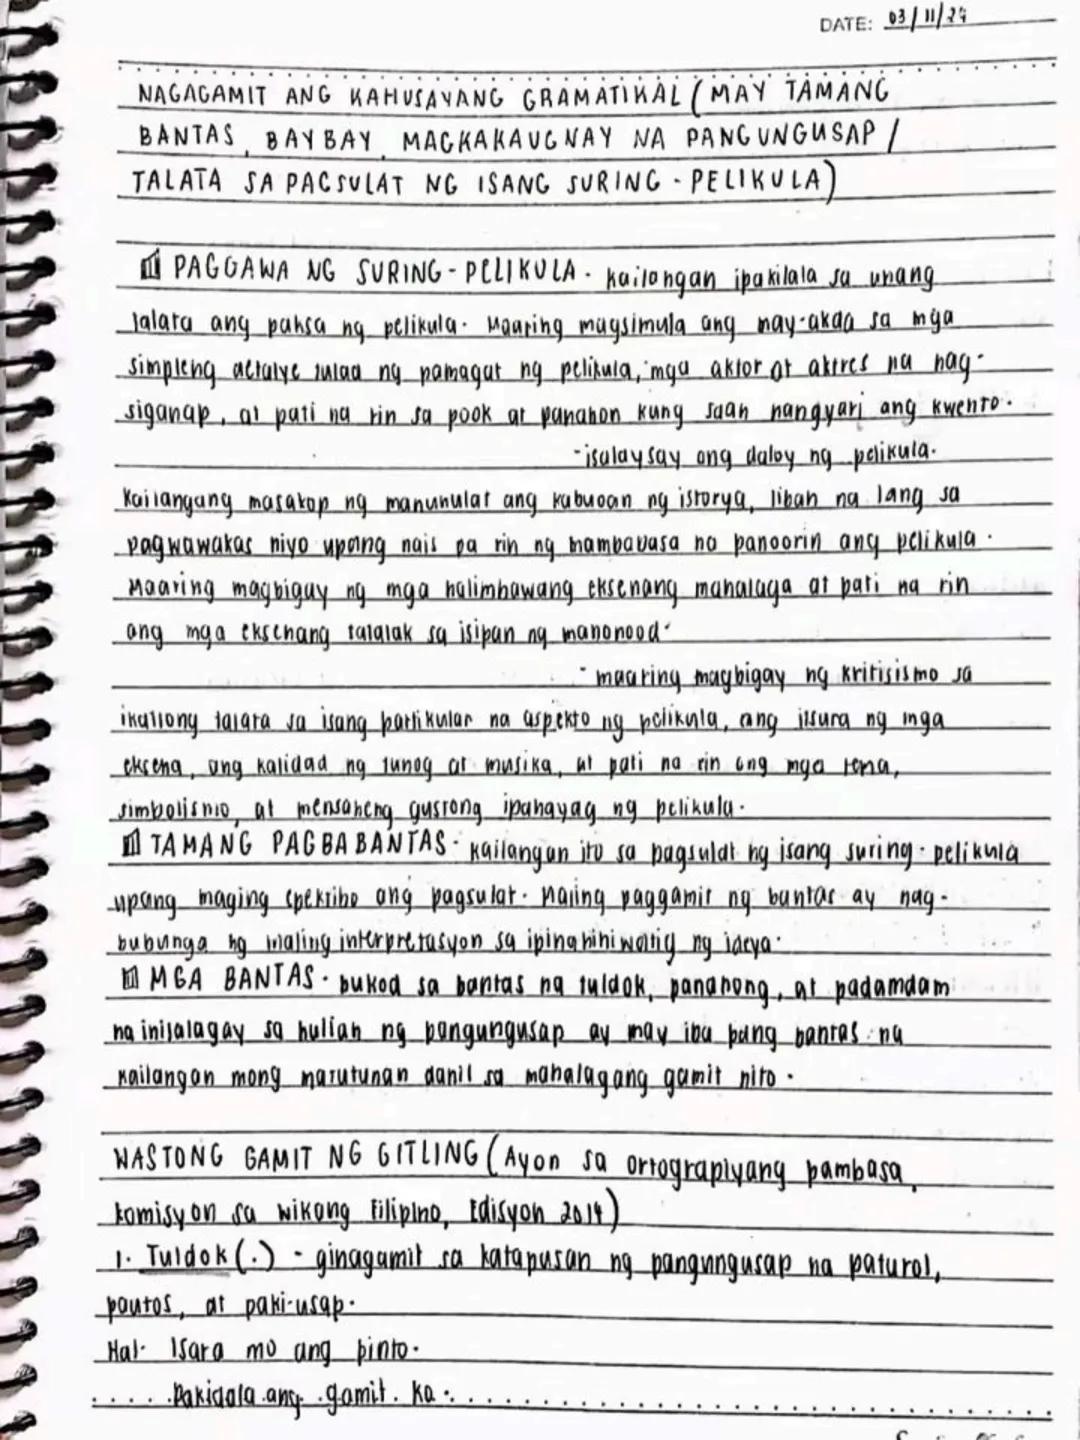 DATE: 03/11/24
NAGAGAMIT ANG KAHUSAYANG GRAMATIKAL (MAY TAMANG
BANTAS, BAYBAY, MAGKAKAUGNAY NA PANGUNGUSAP /
TALATA SA PAGSULAT NG ISANG SURING - PELIKULA)
PAGGAWA NG SURING - PELIKULA - kailangan ipakilala sa unang
talata ang paksa ng pelikula. Maaring magsimula ang may-akda sa mga
simpleng detalye tulad ng pamagat ng pelikula, mga aktor at aktres na nag-
siganap, at pati na rin sa pook at panahon kung saan nangyari ang kwento.
- isalaysay ang daloy ng pelikula.
Kailangang masakop ng manunulat ang kabuoan ng istorya, liban na lang sa
pagwawakas niyo upang nais pa rin ng mambabasa na panoorin ang pelikula.
Maaring magbigay ng mga halimbawang eksenang mahalaga at pati na rin
ang mga eksenang tatatak sa isipan ng manonood.
- maaring magbigay ng kritisismo sa
ikatlong talata sa isang partikular na aspekto ng pelikula, ang itsura ng mga
eksena, ang kalidad ng tunog at musika, at pati na rin ang mga tema,
simbolismo, at mensaheng gustong ipahayag ng pelikula.
TAMANG PAGBABANTAS - kailangan ito sa pagsulat ng isang suring - pelikula
upang maging epektibo ang pagsulat. Maling paggamit ng bantas ay nag-
bubunga ng maling interpretasyon sa ipinahihiwatig ng ideya.
MGA BANTAS - bukod sa bantas na tuldok, pananong, at padamdam
na inilalagay sa hulian ng pangungusap ay may iba pang bantas na
kailangan mong matutunan dahil sa mahalagang gamit nito.
WASTONG GAMIT NG GITLING (Ayon sa ortograpiyang pambasa,
komisyon sa wikang Filipino, Edisyon 2014)
1. Tuldok (.) - ginagamit sa katapusan ng pangungusap na paturol,
pautos, at paki-usap.
Hal. Isara mo ang pinto.
Pakidala ang gamit ko.